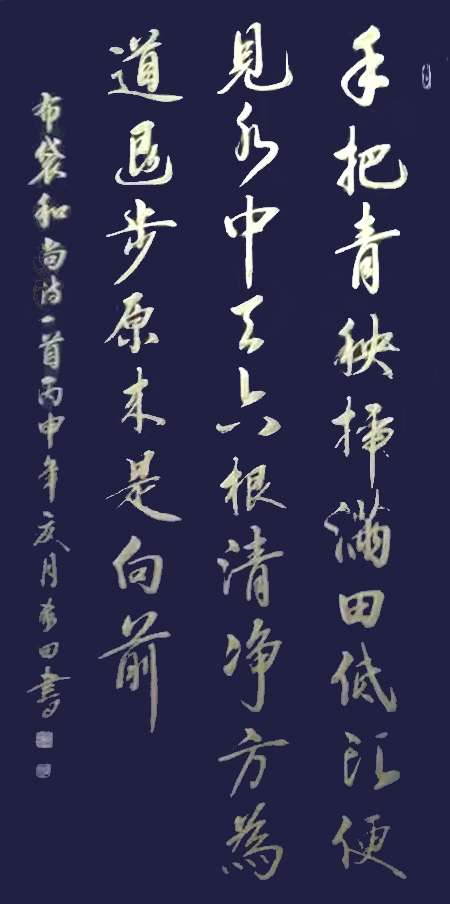 手把青秧插满田低头便
見水中天六根清净方為
道退步原来是向前
布袋和尚诗一首丙申年亥月春田書